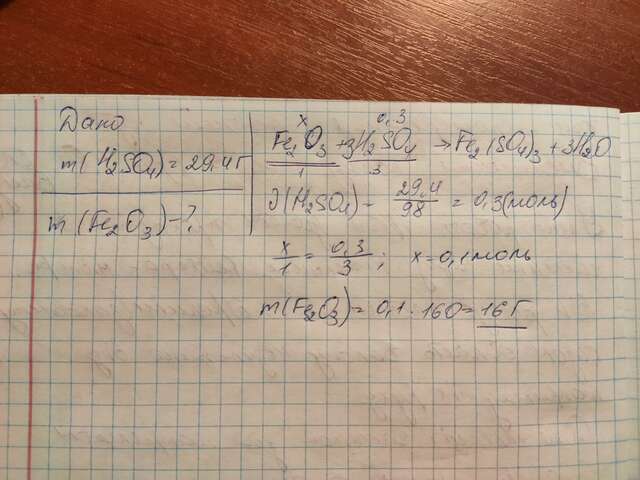 Дано
m(H₂SO₄) = 29,4 г
m(Fe₂O₃) - ?
x 0,3
Fe₂O₃ + 3H₂SO₄ → Fe₂(SO₄)₃ + 3H₂O
1 3
ν(H₂SO₄) - 29,4/98 = 0,3 (моль)
x/1 = 0,3/3 ; x = 0,1 моль
m(Fe₂O₃) = 0,1 · 160 = 16 г